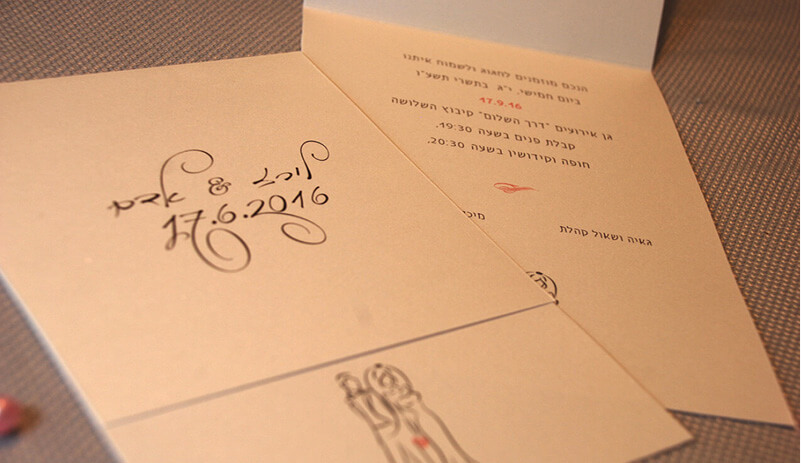 לורד & אדם
17.6.2016
הנכם מוזמנים לחגוג ולשמוח איתנו
ביום חמישי, י"ג בתשרי תשע"ו
17.9.16
גן אירועים "דרך השלום" קיבוץ השלושה
קבלת פנים בשעה 19:30,
חופה וקידושין בשעה 20:30,
גאיה ושאול קהלת